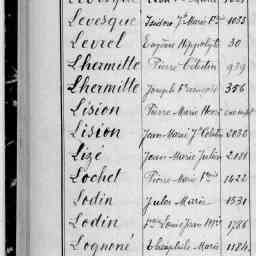 Levesque Isidore Jh Marie 1035
Levrel Eugène Hippolyte 30
Lhermitte Pierre Célestin 939
Lhermitte Joseph François 356
Lision Pierre Marie Henri exempt
Lision Jean Marie Jh Célestin 2030
Lizé Jean Marie Julien 2111
Lochet Pierre Marie 1422
Lodin Jules Marie 1531
Lodin Louis Jean 1786
Lognoné Théophile Marie 1184